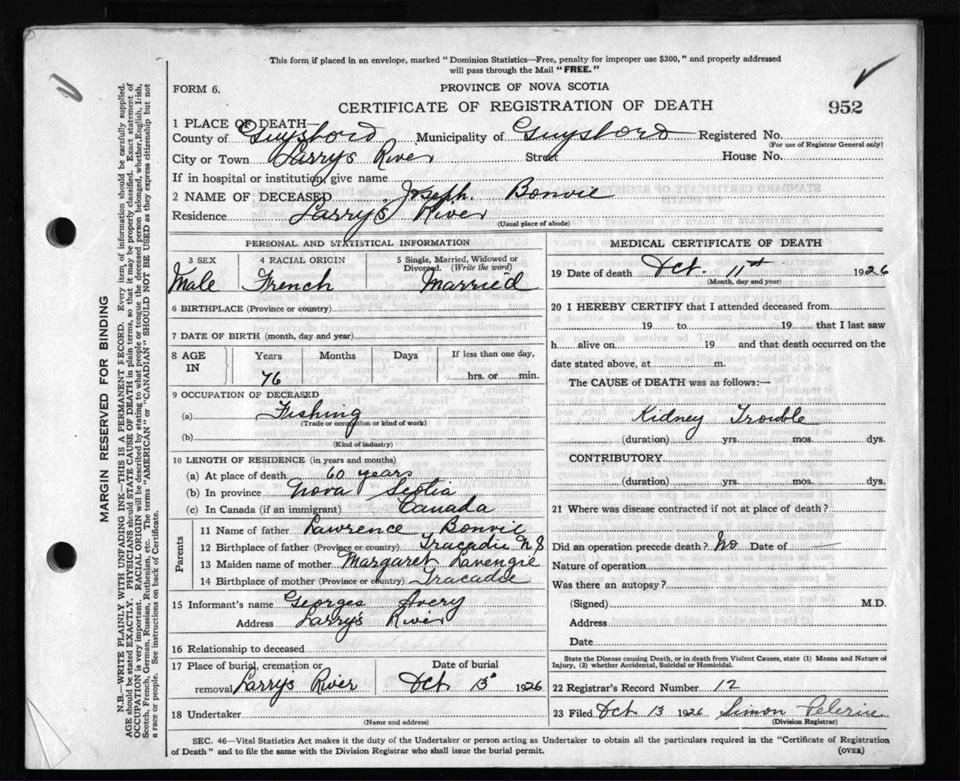 This form if placed in an envelope, marked "Dominion Statistics—Free, penalty for improper use $300," and properly addressed
will pass through the Mail "FREE."
FORM 6.
PROVINCE OF NOVA SCOTIA
CERTIFICATE OF REGISTRATION OF DEATH
952
1 PLACE OF DEATH—
County of Guysboro Municipality of Guysboro Registered No.
(For use of Registrar General only)
City or Town Larrys River Street House No.
If in hospital or institution, give name
2 NAME OF DECEASED Joseph. Bonvie
Residence Larry's River
(Usual place of abode)
PERSONAL AND STATISTICAL INFORMATION
3 SEX
Male
4 RACIAL ORIGIN
French
5 Single, Married, Widowed or
Divorced. (Write the word)
Married
6 BIRTHPLACE (Province or country)
7 DATE OF BIRTH (month, day and year)
8 AGE IN
Years Months Days If less than one day,
76 hrs. or min.
9 OCCUPATION OF DECEASED
(a) Fishing
(Trade or occupation or kind of work)
(b)
(Kind of industry)
10 LENGTH OF RESIDENCE (in years and months)
(a) At place of death 60 years
(b) In province Nova Scotia
(c) In Canada (if an immigrant) Canada
Parents
11 Name of father Lawrence Bonvie
12 Birthplace of father (Province or country) Tracadie N S
13 Maiden name of mother Margaret Lavengie
14 Birthplace of mother (Province or country) Tracadie
15 Informant's name Georges Avery
Address Larry's River
16 Relationship to deceased
17 Place of burial, cremation or
removal Larrys River
Date of burial
Oct 13 1926
18 Undertaker
(Name and address)
MEDICAL CERTIFICATE OF DEATH
19 Date of death Oct. 11st 1926
(Month, day and year)
20 I HEREBY CERTIFY that I attended deceased from
19 to 19 that I last saw
h alive on 19 and that death occurred on the
date stated above, at m.
The CAUSE of DEATH was as follows:—
Kidney Trouble
(duration) yrs. mos. dys.
CONTRIBUTORY
(duration) yrs. mos. dys.
21 Where was disease contracted if not at place of death?
Did an operation precede death? No Date of —
Nature of operation
Was there an autopsy?
(Signed) M.D.
Address
Date
State the Disease causing Death, or in death from Violent Causes, state (1) Means and Nature of
Injury, (2) whether Accidental, Suicidal or Homicidal.
22 Registrar's Record Number 12
23 Filed Oct 13 1926 Simon Pelerin
(Division Registrar)
SEC. 46—Vital Statistics Act makes it the duty of the Undertaker or person acting as Undertaker to obtain all the particulars required in the "Certificate of Registration
of Death" and to file the same with the Division Registrar who shall issue the burial permit.
(OVER)
MARGIN RESERVED FOR BINDING
N.B.—WRITE PLAINLY WITH UNFADING INK—THIS IS A PERMANENT RECORD. Every item of information should be carefully supplied.
AGE should be stated EXACTLY. PHYSICIANS should STATE CAUSE OF DEATH in plain terms, so that it may be properly classified. Exact statement of
OCCUPATION is very important. RACIAL ORIGIN will be described by stating to what people or tongue the deceased person belonged, whether English, Irish,
Scotch, French, German, Russian, Ruthenian, etc. The terms "AMERICAN" or "CANADIAN" SHOULD NOT BE USED as they express citizenship but not
a race or people. See instructions on back of Certificate.